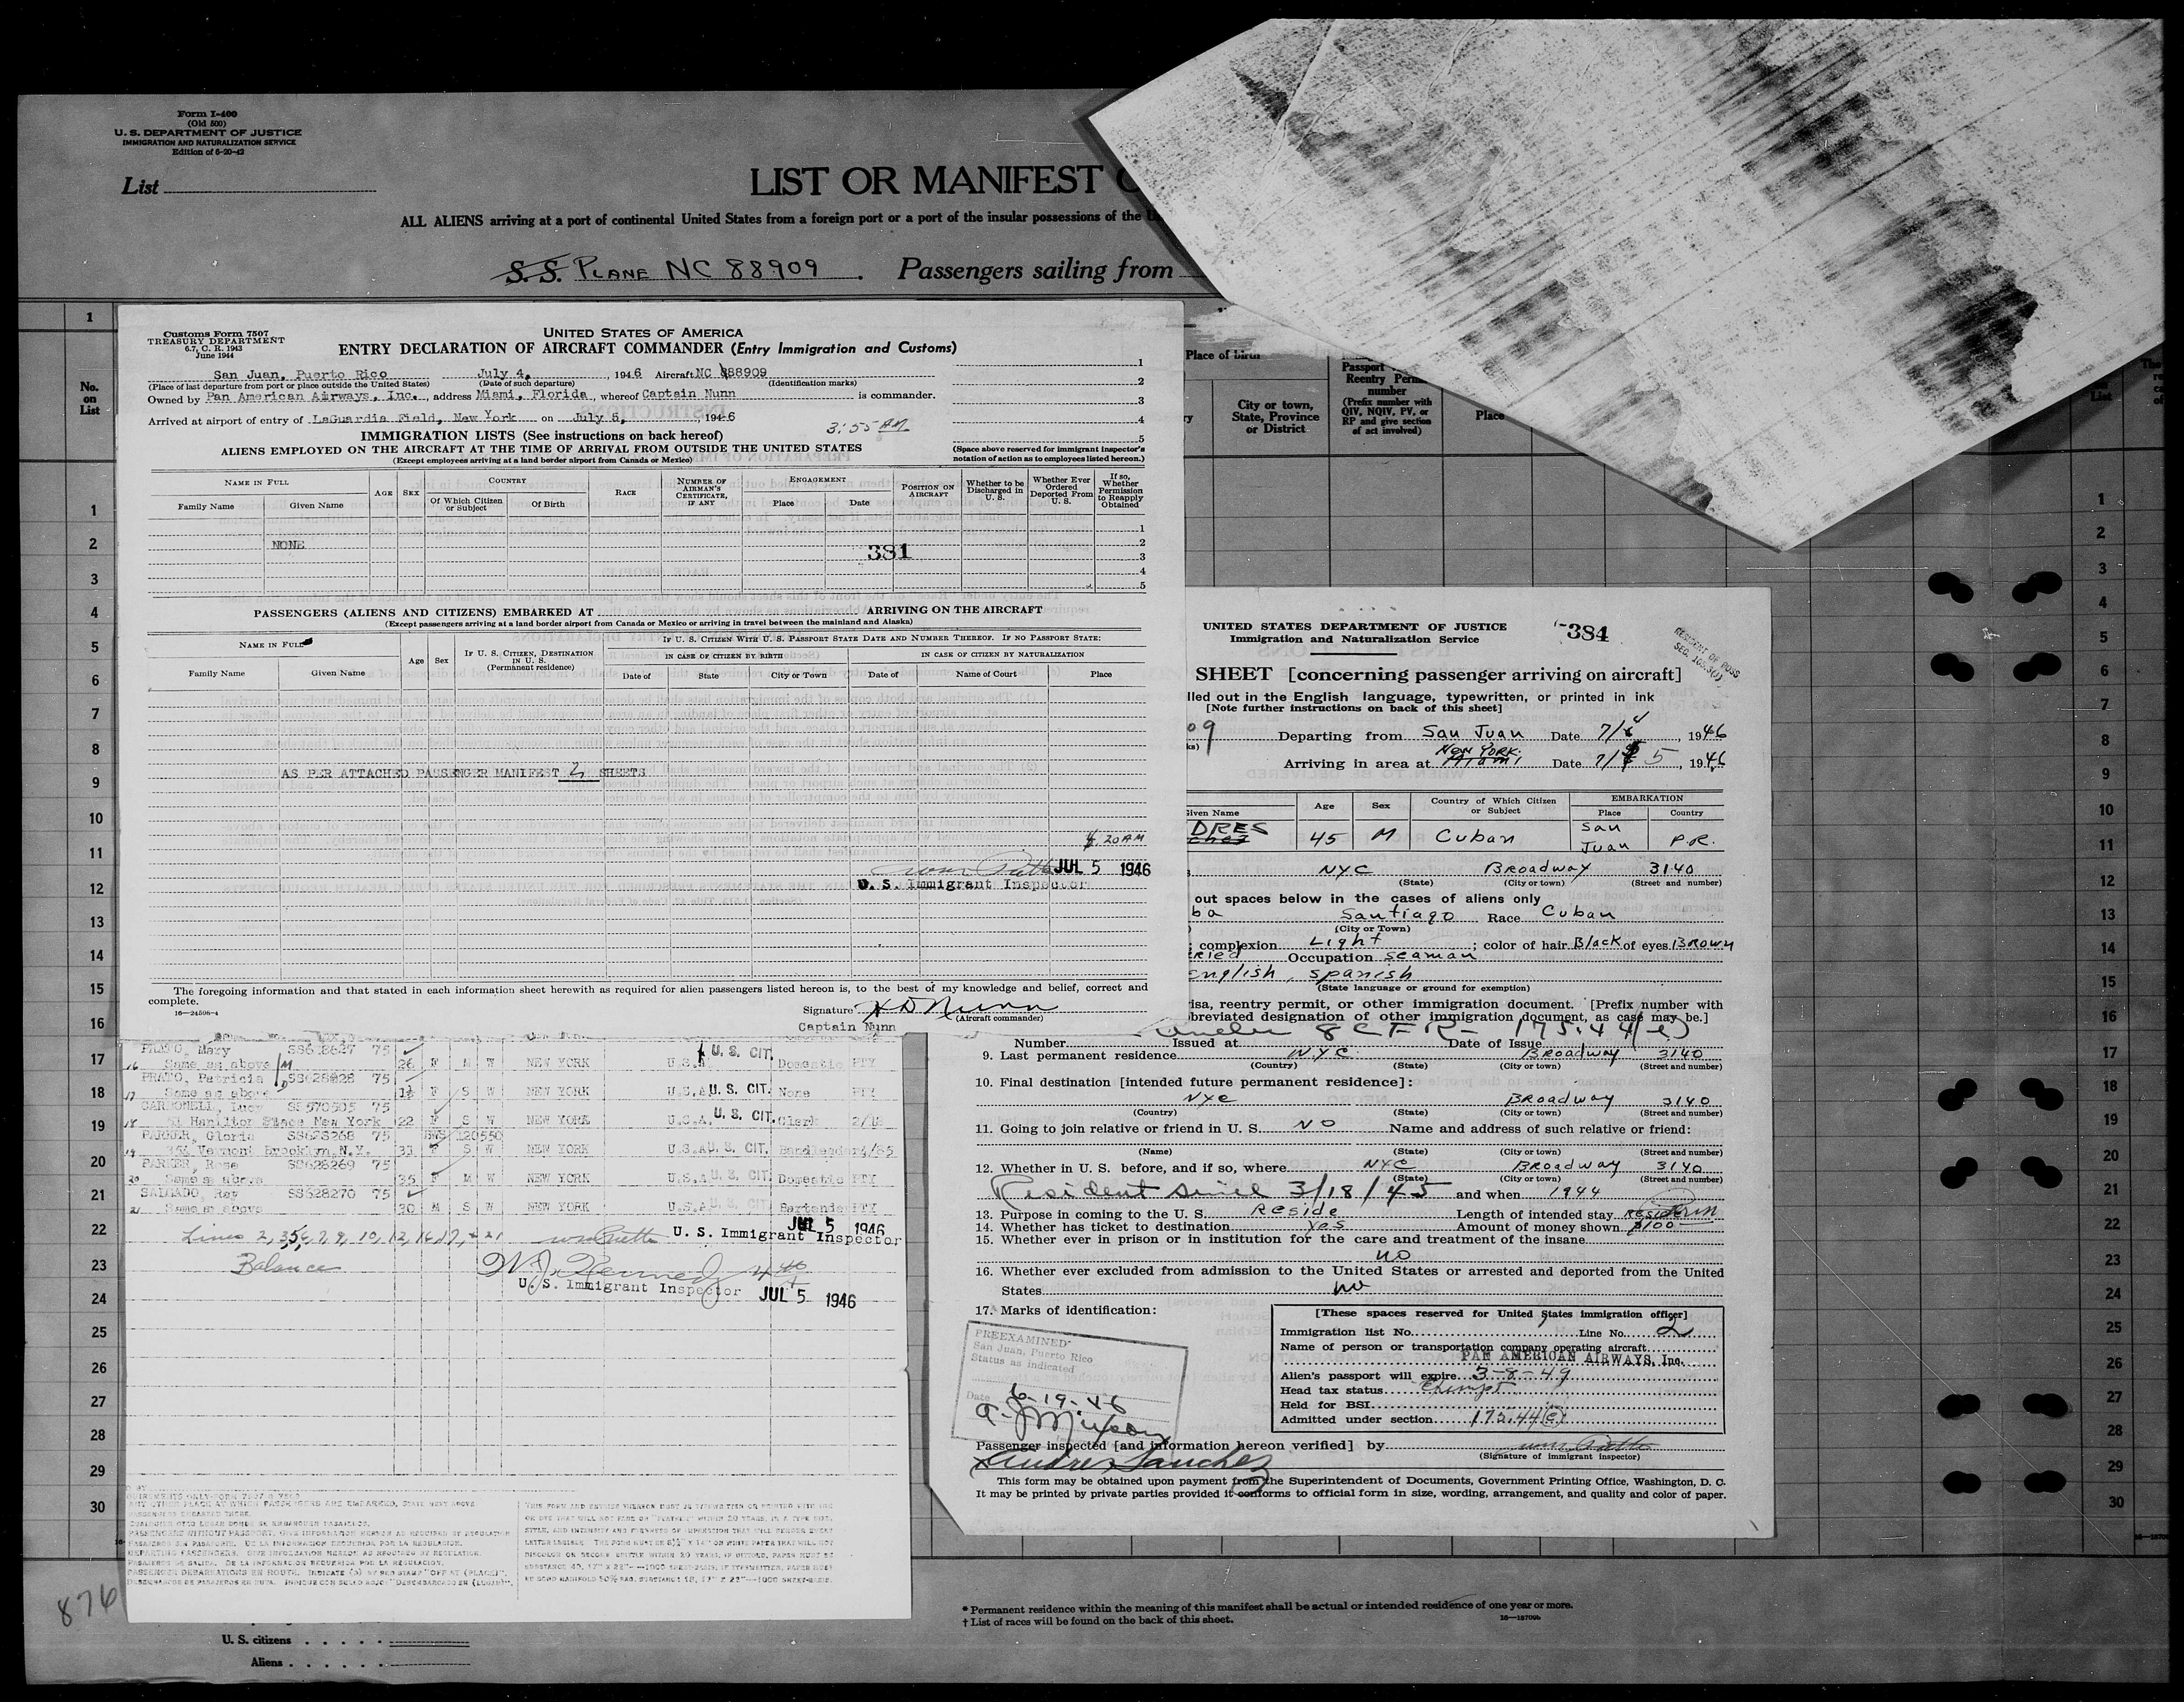 Form I-400
(Old 500)
U. S. DEPARTMENT OF JUSTICE
IMMIGRATION AND NATURALIZATION SERVICE
Edition of 6-20-42
List
LIST OR MANIFEST
ALL ALIENS arriving at a port of continental United States from a foreign port or a port of the insular possessions of the
S.S. PLANE NC 88909 . Passengers sailing from
Customs Form 7507
TREASURY DEPARTMENT
6.7, C. R. 1943
June 1944
UNITED STATES OF AMERICA
ENTRY DECLARATION OF AIRCRAFT COMMANDER (Entry Immigration and Customs)
San Juan, Puerto Rico July 4, , 1946 Aircraft NC 88909
(Place of last departure from port or place outside the United States) (Date of such departure) (Identification marks)
Owned by Pan American Airways, Inc. address Miami, Florida, whereof Captain Nunn is commander.
Arrived at airport of entry of LaGuardia Field, New York on July 5, , 1946
3:55 AM
IMMIGRATION LISTS (See instructions on back hereof)
ALIENS EMPLOYED ON THE AIRCRAFT AT THE TIME OF ARRIVAL FROM OUTSIDE THE UNITED STATES
(Except employees arriving at a land border airport from Canada or Mexico)
(Space above reserved for immigrant inspector's notation of action as to employees listed hereon.)
NAME IN FULL
Family Name Given Name
AGE SEX
COUNTRY
Of Which Citizen or Subject Of Birth
RACE
NUMBER OF AIRMAN'S CERTIFICATE, IF ANY
ENGAGEMENT
Place Date
POSITION ON AIRCRAFT
Whether to be Discharged in U. S.
Whether Ever Ordered Deported From U. S.
If so, Whether Permission to Reapply Obtained
NONE
381
PASSENGERS (ALIENS AND CITIZENS) EMBARKED AT ARRIVING ON THE AIRCRAFT
(Except passengers arriving at a land border airport from Canada or Mexico or arriving in travel between the mainland and Alaska)
NAME IN FULL
Family Name Given Name
Age Sex
IF U. S. CITIZEN, DESTINATION IN U. S. (Permanent residence)
IF U. S. CITIZEN WITH U. S. PASSPORT STATE DATE AND NUMBER THEREOF. IF NO PASSPORT STATE:
IN CASE OF CITIZEN BY BIRTH IN CASE OF CITIZEN BY NATURALIZATION
Date of State City or Town Date of Name of Court Place
AS PER ATTACHED PASSENGER MANIFEST 2 SHEETS
20 AM
JUL 5 1946
U. S. Immigrant Inspector
The foregoing information and that stated in each information sheet herewith as required for alien passengers listed hereon is, to the best of my knowledge and belief, correct and
complete.
16-24598-4
Signature H D Nunn
(Aircraft commander)
Captain Nunn
PRATO, Mary SS628627 75
16 Same as above 26 F M W NEW YORK U.S.A. U. S. CIT. Domestic PTY
PRATO, Patricia SS628828 75
17 Same as above 1½ F S W NEW YORK U.S.A. U. S. CIT. None PTY
CARBONELL, Lucy SS570505 75
18 51 Hamilton Place New York 22 F S W NEW YORK U.S.A. U. S. CIT. Clerk
PARKER, Gloria SS628268 75 BWS 120550
19 Vermont Brooklyn, N.Y. 33 F S W NEW YORK U.S.A. U. S. CIT. Bandleader
PARKER, Rose SS628269 75
20 Same as above 35 F M W NEW YORK U.S.A. U. S. CIT. Domestic PTY
SALGADO, Ray SS628270 75
21 Same as above 30 M S W NEW YORK U.S.A. U. S. CIT. Bartender PTY
JUL 5 1946
U. S. Immigrant Inspector
Balance
W. J. Kennedy
U. S. Immigrant Inspector JUL 5 1946
PASSENGERS EMBARKED THERE.
PASSENGERS WITHOUT PASSPORT, GIVE INFORMATION HEREON AS REQUIRED BY REGULATION
876
U. S. citizens
Aliens
Place of birth
City or town, State, Province or District
Reentry Permit number
(Prefix number with QIV, NQIV, PV, or RP and give section of act involved)
Place
No. on List
UNITED STATES DEPARTMENT OF JUSTICE
Immigration and Naturalization Service
384
SHEET [concerning passenger arriving on aircraft]
lled out in the English language, typewritten, or printed in ink
[Note further instructions on back of this sheet]
09 Departing from San Juan Date 7/4 , 1946
Arriving in area at New York Miami Date 7/5 , 1946
Given Name Age Sex Country of Which Citizen or Subject EMBARKATION Place Country
DRES 45 M Cuban San Juan P.R.
NYC Broadway 3140
(State) (City or town) (Street and number)
out spaces below in the cases of aliens only
ba Santiago Race Cuban
(City or Town)
complexion Light ; color of hair Black of eyes Brown
ried Occupation seaman
English, spanish
(State language or ground for exemption)
isa, reentry permit, or other immigration document. [Prefix number with
bbreviated designation of other immigration document, as case may be.]
under 8 CFR- 175.44(e)
Number Issued at Date of Issue
9. Last permanent residence NYC Broadway 3140
(Country) (State) (City or town) (Street and number)
10. Final destination [intended future permanent residence]:
NYC Broadway 3140
(Country) (State) (City or town) (Street and number)
11. Going to join relative or friend in U. S. NO Name and address of such relative or friend:
(Name) (State) (City or town) (Street and number)
12. Whether in U. S. before, and if so, where NYC Broadway 3140
(State) (City or town) (Street and number)
Resident since 3/18/45 and when 1944
13. Purpose in coming to the U. S. Reside Length of intended stay
14. Whether has ticket to destination Yes Amount of money shown $100
15. Whether ever in prison or in institution for the care and treatment of the insane
no
16. Whether ever excluded from admission to the United States or arrested and deported from the United
States no
17. Marks of identification:
PREEXAMINED
San Juan, Puerto Rico
Status as indicated
Date 6-19-46
[These spaces reserved for United States immigration officer]
Immigration list No. Line No. 2
Name of person or transportation company operating aircraft
PAN AMERICAN AIRWAYS, Inc.
Alien's passport will expire 3-8-49
Head tax status Exempt
Held for BSI
Admitted under section 175.44(e)
Passenger inspected [and information hereon verified] by
(Signature of immigrant inspector)
Andres Sanchez
This form may be obtained upon payment from the Superintendent of Documents, Government Printing Office, Washington, D. C.
It may be printed by private parties provided it conforms to official form in size, wording, arrangement, and quality and color of paper.
* Permanent residence within the meaning of this manifest shall be actual or intended residence of one year or more.
† List of races will be found on the back of this sheet.
16—18709b